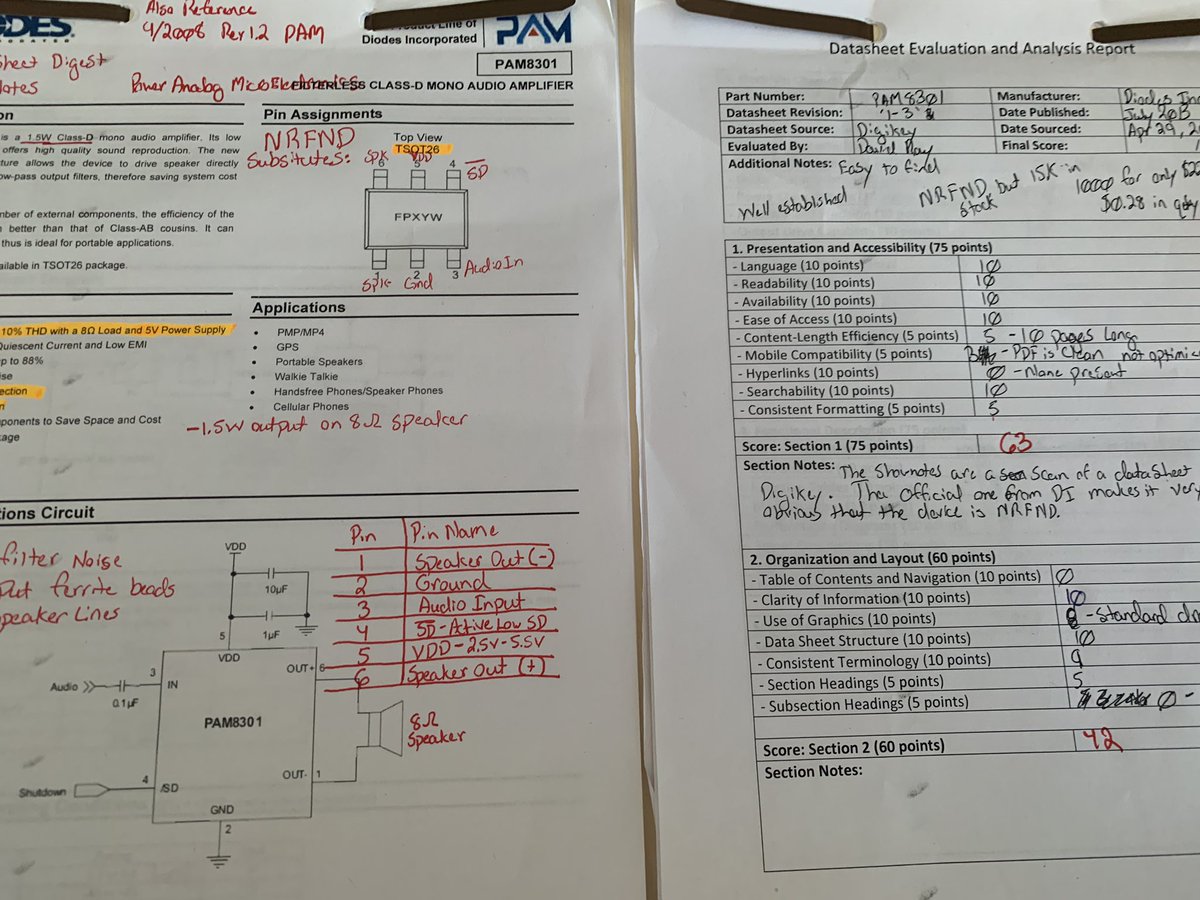 Also Reference
4/2008 Rev 1.2 PAM
ODES
Sheet Digest
Notes
Power Analog MicroElectronics
Product Line of
Diodes Incorporated
PAM
PAM8301
FILTERLESS CLASS-D MONO AUDIO AMPLIFIER
on
is a 1.5W Class-D mono audio amplifier. Its low
offers high quality sound reproduction. The new
ture allows the device to drive speaker directly
ow-pass output filters, therefore saving system cost
mber of external components, the efficiency of the
better than that of Class-AB cousins. It can
thus is ideal for portable applications.
ailable in TSOT26 package.
Pin Assignments
NRFND
Substitutes:
Top View
TSOT26
Spk VDD
6 5 4
SD
FPXYW
1 2 3
Spk- Gnd
Audio In
10% THD with a 8Ω Load and 5V Power Supply
Quiescent Current and Low EMI
p to 88%
ise
ection
n
ponents to Save Space and Cost
kage
Applications
• PMP/MP4
• GPS
• Portable Speakers
• Walkie Talkie
• Handsfree Phones/Speaker Phones
• Cellular Phones
-1.5W output on 8Ω Speaker
ions Circuit
filter Noise
Put ferrite beads
Speaker Lines
VDD
10µF
1µF
5
VDD
3
IN
Audio
0.1µF
PAM8301
OUT+ 6
OUT- 1
4
/SD
Shutdown
GND
2
8Ω
Speaker
Pin Pin Name
1 Speaker Out (-)
2 Ground
3 Audio Input
4 SD-Active Low SD
5 VDD-2.5V-5.5V
6 Speaker Out (+)
Datasheet Evaluation and Analysis Report
Part Number: PAM8301 Manufacturer: Diodes Inc
Datasheet Revision: 1-3 Date Published: July 2013
Datasheet Source: Digikey Date Sourced: Apr 29, 2
Evaluated By: Final Score: 1
Additional Notes: Easy to find
Well established
NRFND, but 15K in stock
1000 for only $22
$0.28 in qty
1. Presentation and Accessibility (75 points)
- Language (10 points) 10
- Readability (10 points) 10
- Availability (10 points) 10
- Ease of Access (10 points) 10
- Content-Length Efficiency (5 points) 5 - 10 Pages Long
- Mobile Compatibility (5 points) 3 - PDF is Clean not optimi
- Hyperlinks (10 points) 0 - None Present
- Searchability (10 points) 10
- Consistent Formatting (5 points) 5
Score: Section 1 (75 points) 63
Section Notes: The Shownotes are a scan of a datasheet
Digikey. The official one from DI makes it very
obvious that the device is NRFND.
2. Organization and Layout (60 points)
- Table of Contents and Navigation (10 points) 0
- Clarity of Information (10 points) 10
- Use of Graphics (10 points) 8 - Standard
- Data Sheet Structure (10 points) 10
- Consistent Terminology (10 points) 9
- Section Headings (5 points) 5
- Subsection Headings (5 points) 0 -
Score: Section 2 (60 points) 42
Section Notes: